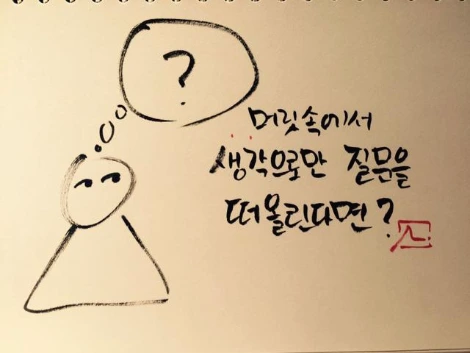 ?
머릿속에서
생각으로만 질문을
떠올린다면?